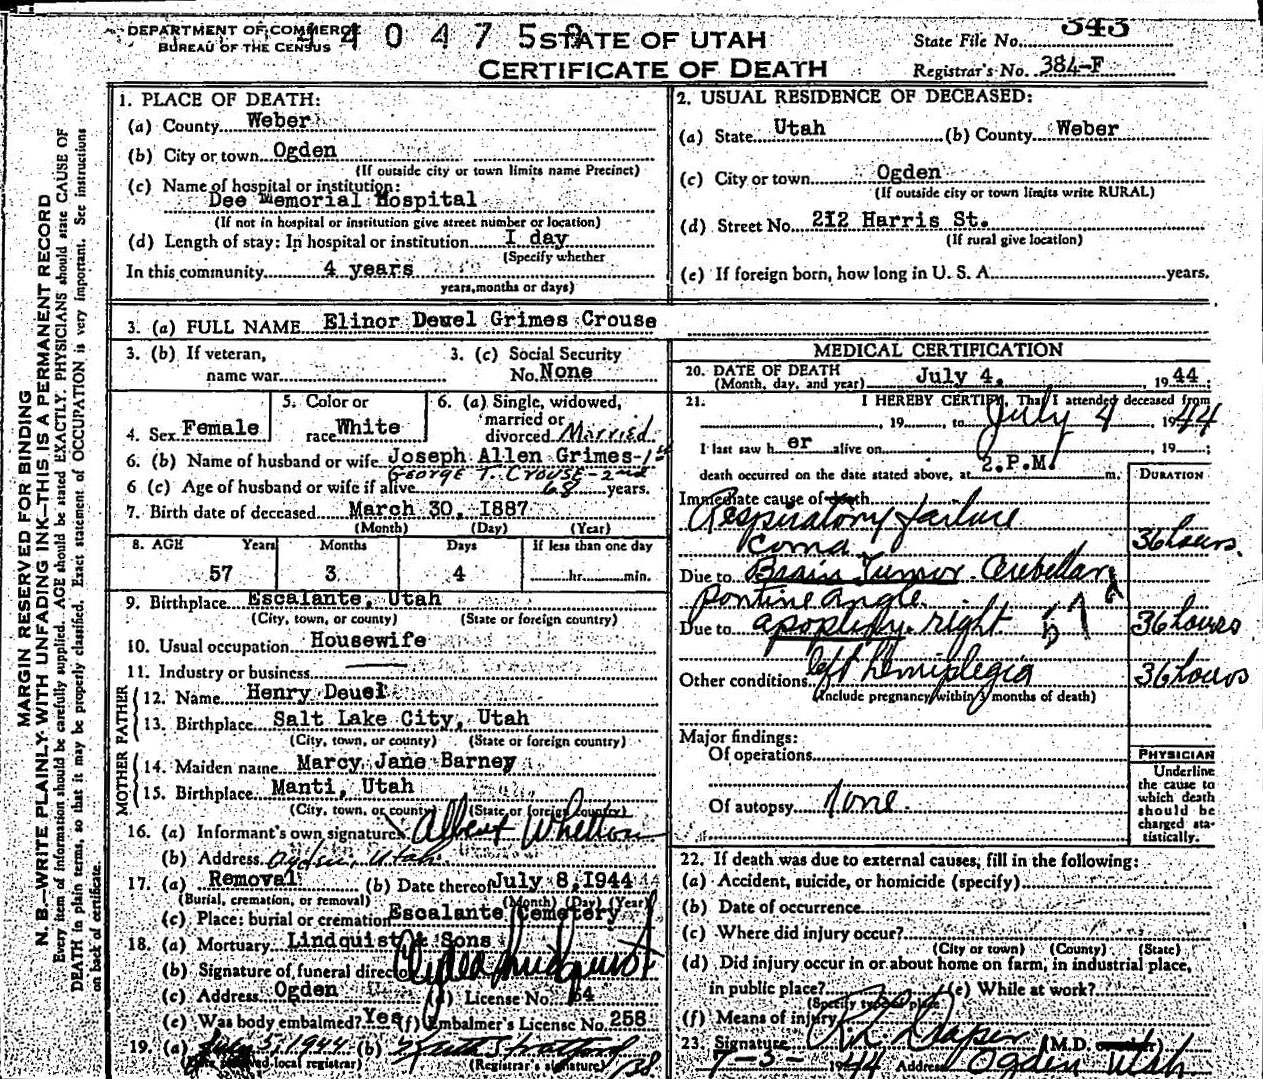 DEPARTMENT OF COMMERCE
BUREAU OF THE CENSUS
440475
STATE OF UTAH
CERTIFICATE OF DEATH
State File No. 343
Registrar's No. 384-F
MARGIN RESERVED FOR BINDING
N. B.—WRITE PLAINLY WITH UNFADING INK—THIS IS A PERMANENT RECORD
Every item of information should be carefully supplied. AGE should be stated EXACTLY. PHYSICIANS should state CAUSE OF
DEATH in plain terms, so that it may be properly classified. Exact statement of OCCUPATION is very important. See instructions
on back of certificate.
1. PLACE OF DEATH:
(a) County Weber
(b) City or town Ogden
(If outside city or town limits name Precinct)
(c) Name of hospital or institution:
Dee Memorial Hospital
(If not in hospital or institution give street number or location)
(d) Length of stay: In hospital or institution 1 day
(Specify whether
In this community 4 years
years, months or days)
2. USUAL RESIDENCE OF DECEASED:
(a) State Utah (b) County Weber
(c) City or town Ogden
(If outside city or town limits write RURAL)
(d) Street No. 212 Harris St.
(If rural give location)
(e) If foreign born, how long in U. S. A. years.
3. (a) FULL NAME Elinor Deuel Grimes Crouse
3. (b) If veteran,
name war
3. (c) Social Security
No. None
4. Sex Female
5. Color or
race White
6. (a) Single, widowed,
married or
divorced Married
6. (b) Name of husband or wife Joseph Allen Grimes-1st
George T. Crouse-2nd
6 (c) Age of husband or wife if alive 68 years.
7. Birth date of deceased March 30, 1887
(Month) (Day) (Year)
8. AGE Years Months Days If less than one day
57 3 4 hr. min.
9. Birthplace Escalante, Utah
(City, town, or county) (State or foreign country)
10. Usual occupation Housewife
11. Industry or business
FATHER
12. Name Henry Deuel
13. Birthplace Salt Lake City, Utah
(City, town, or county) (State or foreign country)
MOTHER
14. Maiden name Marcy Jane Barney
15. Birthplace Manti, Utah
(City, town, or county) (State or foreign country)
16. (a) Informant's own signature Albert Whetton
(b) Address Ogden, Utah
17. (a) Removal (b) Date thereof July 8, 1944
(Burial, cremation, or removal) (Month) (Day) (Year)
(c) Place: burial or cremation Escalante Cemetery
18. (a) Mortuary Lindquist & Sons
(b) Signature of funeral director Clyde Lindquist
(c) Address Ogden (d) License No. 64
(e) Was body embalmed? Yes (f) Embalmer's License No. 258
19. (a) July 5, 1944 (b)
local registrar) (Registrar's signature)
MEDICAL CERTIFICATION
20. DATE OF DEATH
(Month, day, and year) July 4, 1944;
21. I HEREBY CERTIFY, That I attended deceased from
, 19 , to July 4, 1944
I last saw h er alive on , 19 ;
death occurred on the date stated above, at 2.P.M. m.
DURATION
Immediate cause of death
Respiratory failure
coma 36 hours.
Due to Brain Tumor Cerebellar
Pontine angle
Due to apoplexy right 36 hours
Other conditions left hemiplegia 36 hours
(Include pregnancy within 3 months of death)
Major findings:
Of operations
Of autopsy None.
PHYSICIAN
Underline
the cause to
which death
should be
charged sta-
tistically.
22. If death was due to external causes, fill in the following:
(a) Accident, suicide, or homicide (specify)
(b) Date of occurrence
(c) Where did injury occur?
(City or town) (County) (State)
(d) Did injury occur in or about home on farm, in industrial place,
in public place? (e) While at work?
(Specify type of place)
(f) Means of injury
23. Signature Draper (M.D.
7-3-1944 Address Ogden Utah